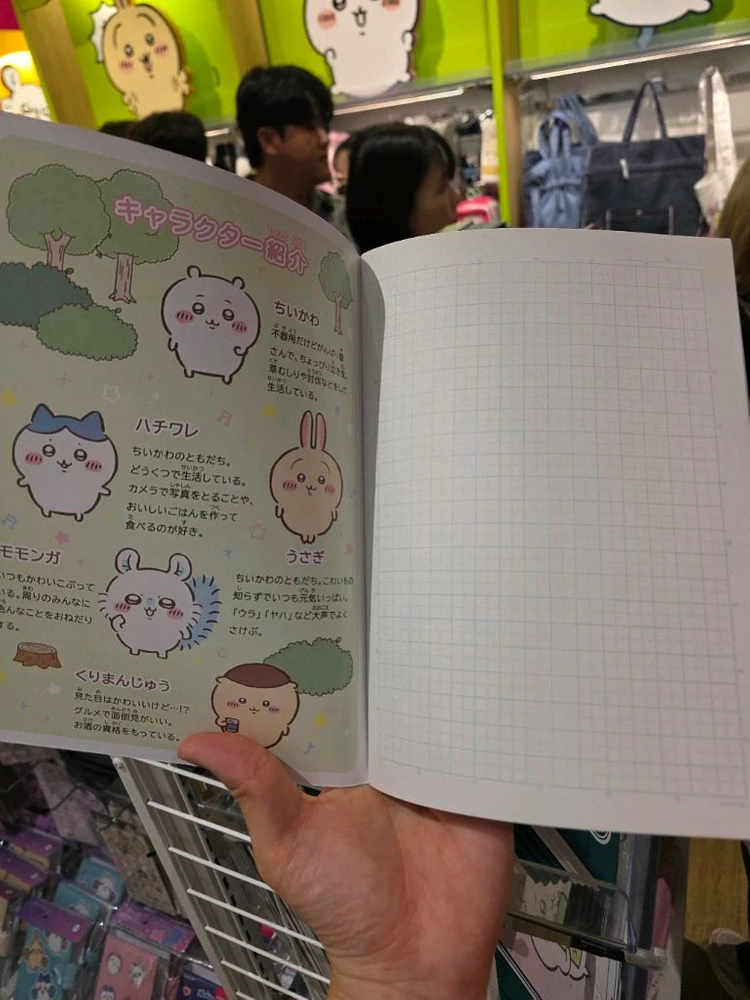 キャラクター紹介
ちいかわ
不器用だけどがんばり屋
さんで、ちょっぴり泣き虫。
草むしりや討伐などをして
生活している。
ハチワレ
ちいかわのともだち。
どうくつで生活している。
カメラで写真をとることや、
おいしいごはんを作って
食べるのが好き。
うさぎ
ちいかわのともだち。こわいもの
知らずでいつも元気いっぱい。
「ウラ」「ヤハ」など大声でよく
さけぶ。
モモンガ
いつもかわいこぶって
いる。周りのみんなに
色んなことをおねだり
する。
くりまんじゅう
見た目はかわいいけど…!?
グルメで面倒見がいい。
お酒の資格をもっている。